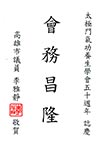 太極門氣功養生學會五十週年誌慶
會務昌隆
高雄市議員 李雅靜
敬賀